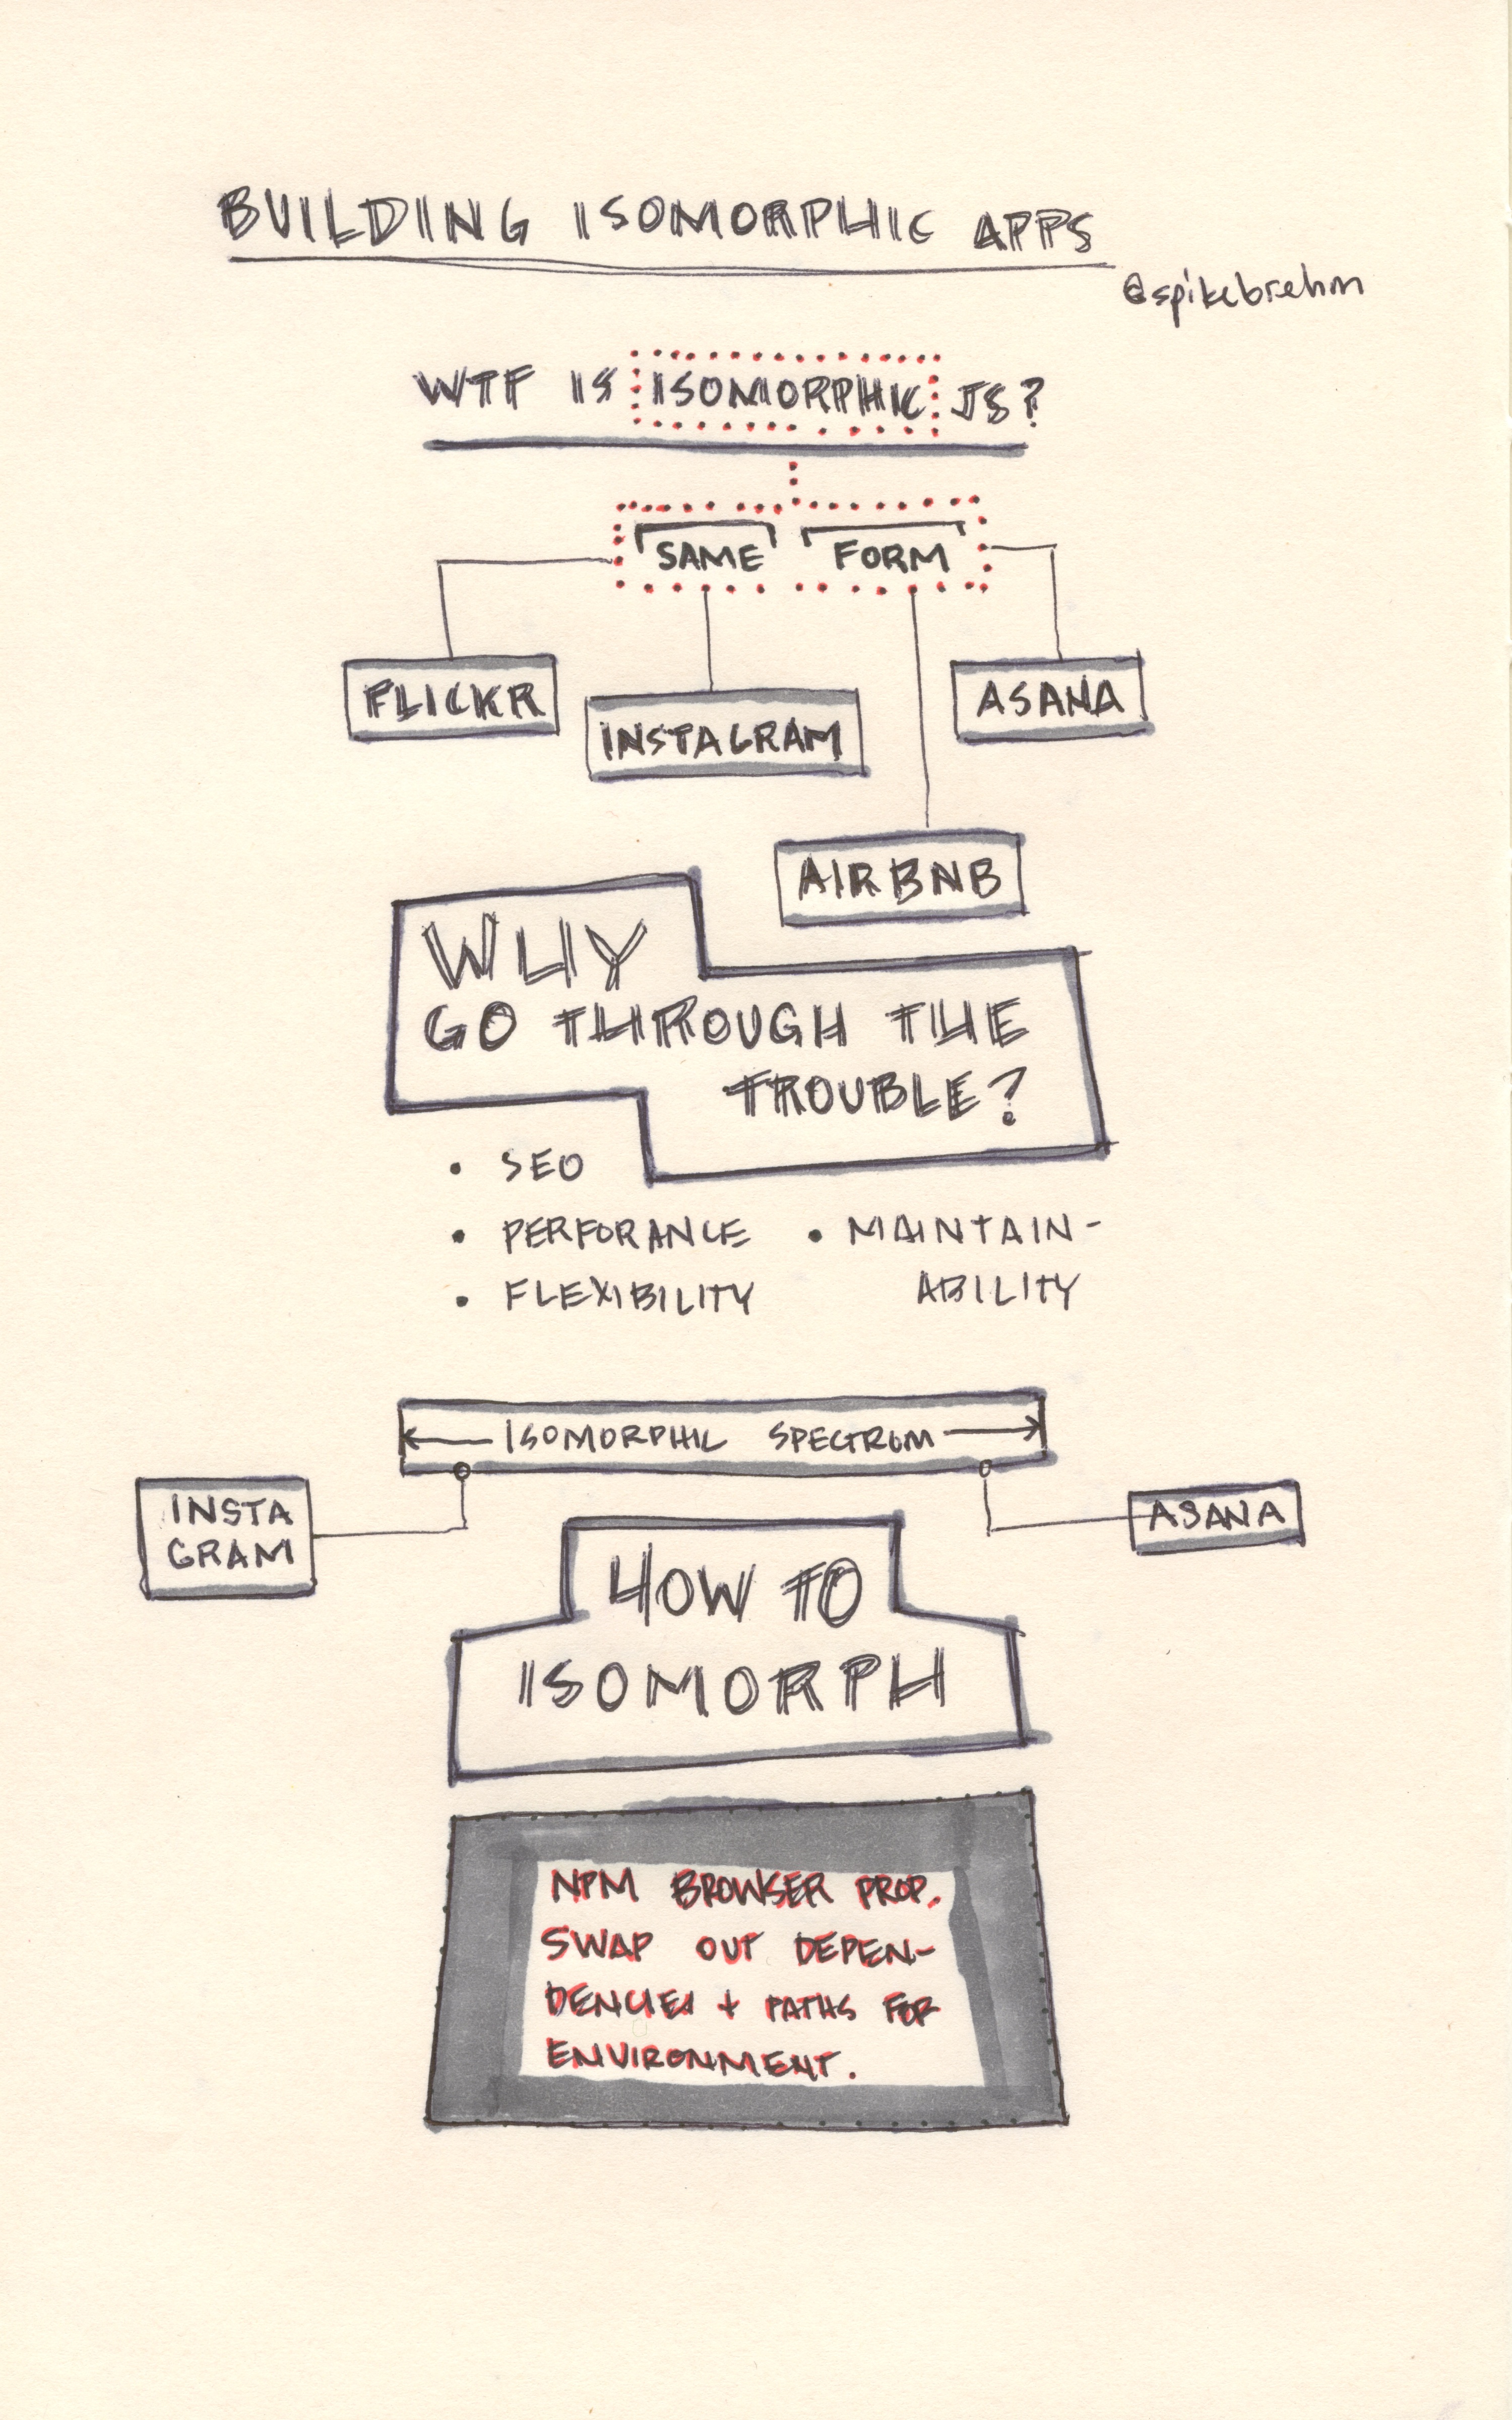 BUILDING ISOMORPHIC APPS
@spikebrehm
WTF IS ISOMORPHIC JS?
SAME FORM
FLICKR
INSTAGRAM
ASANA
AIRBNB
WHY
GO THROUGH THE
TROUBLE?
• SEO
• PERFORANCE
• FLEXIBILITY
• MAINTAIN-
ABILITY
ISOMORPHIC SPECTROM
INSTA
GRAM
ASANA
HOW TO
ISOMORPH
NPM BROWSER PROP.
SWAP OUT DEPEN-
DENCIES + PATHS FOR
ENVIRONMENT.